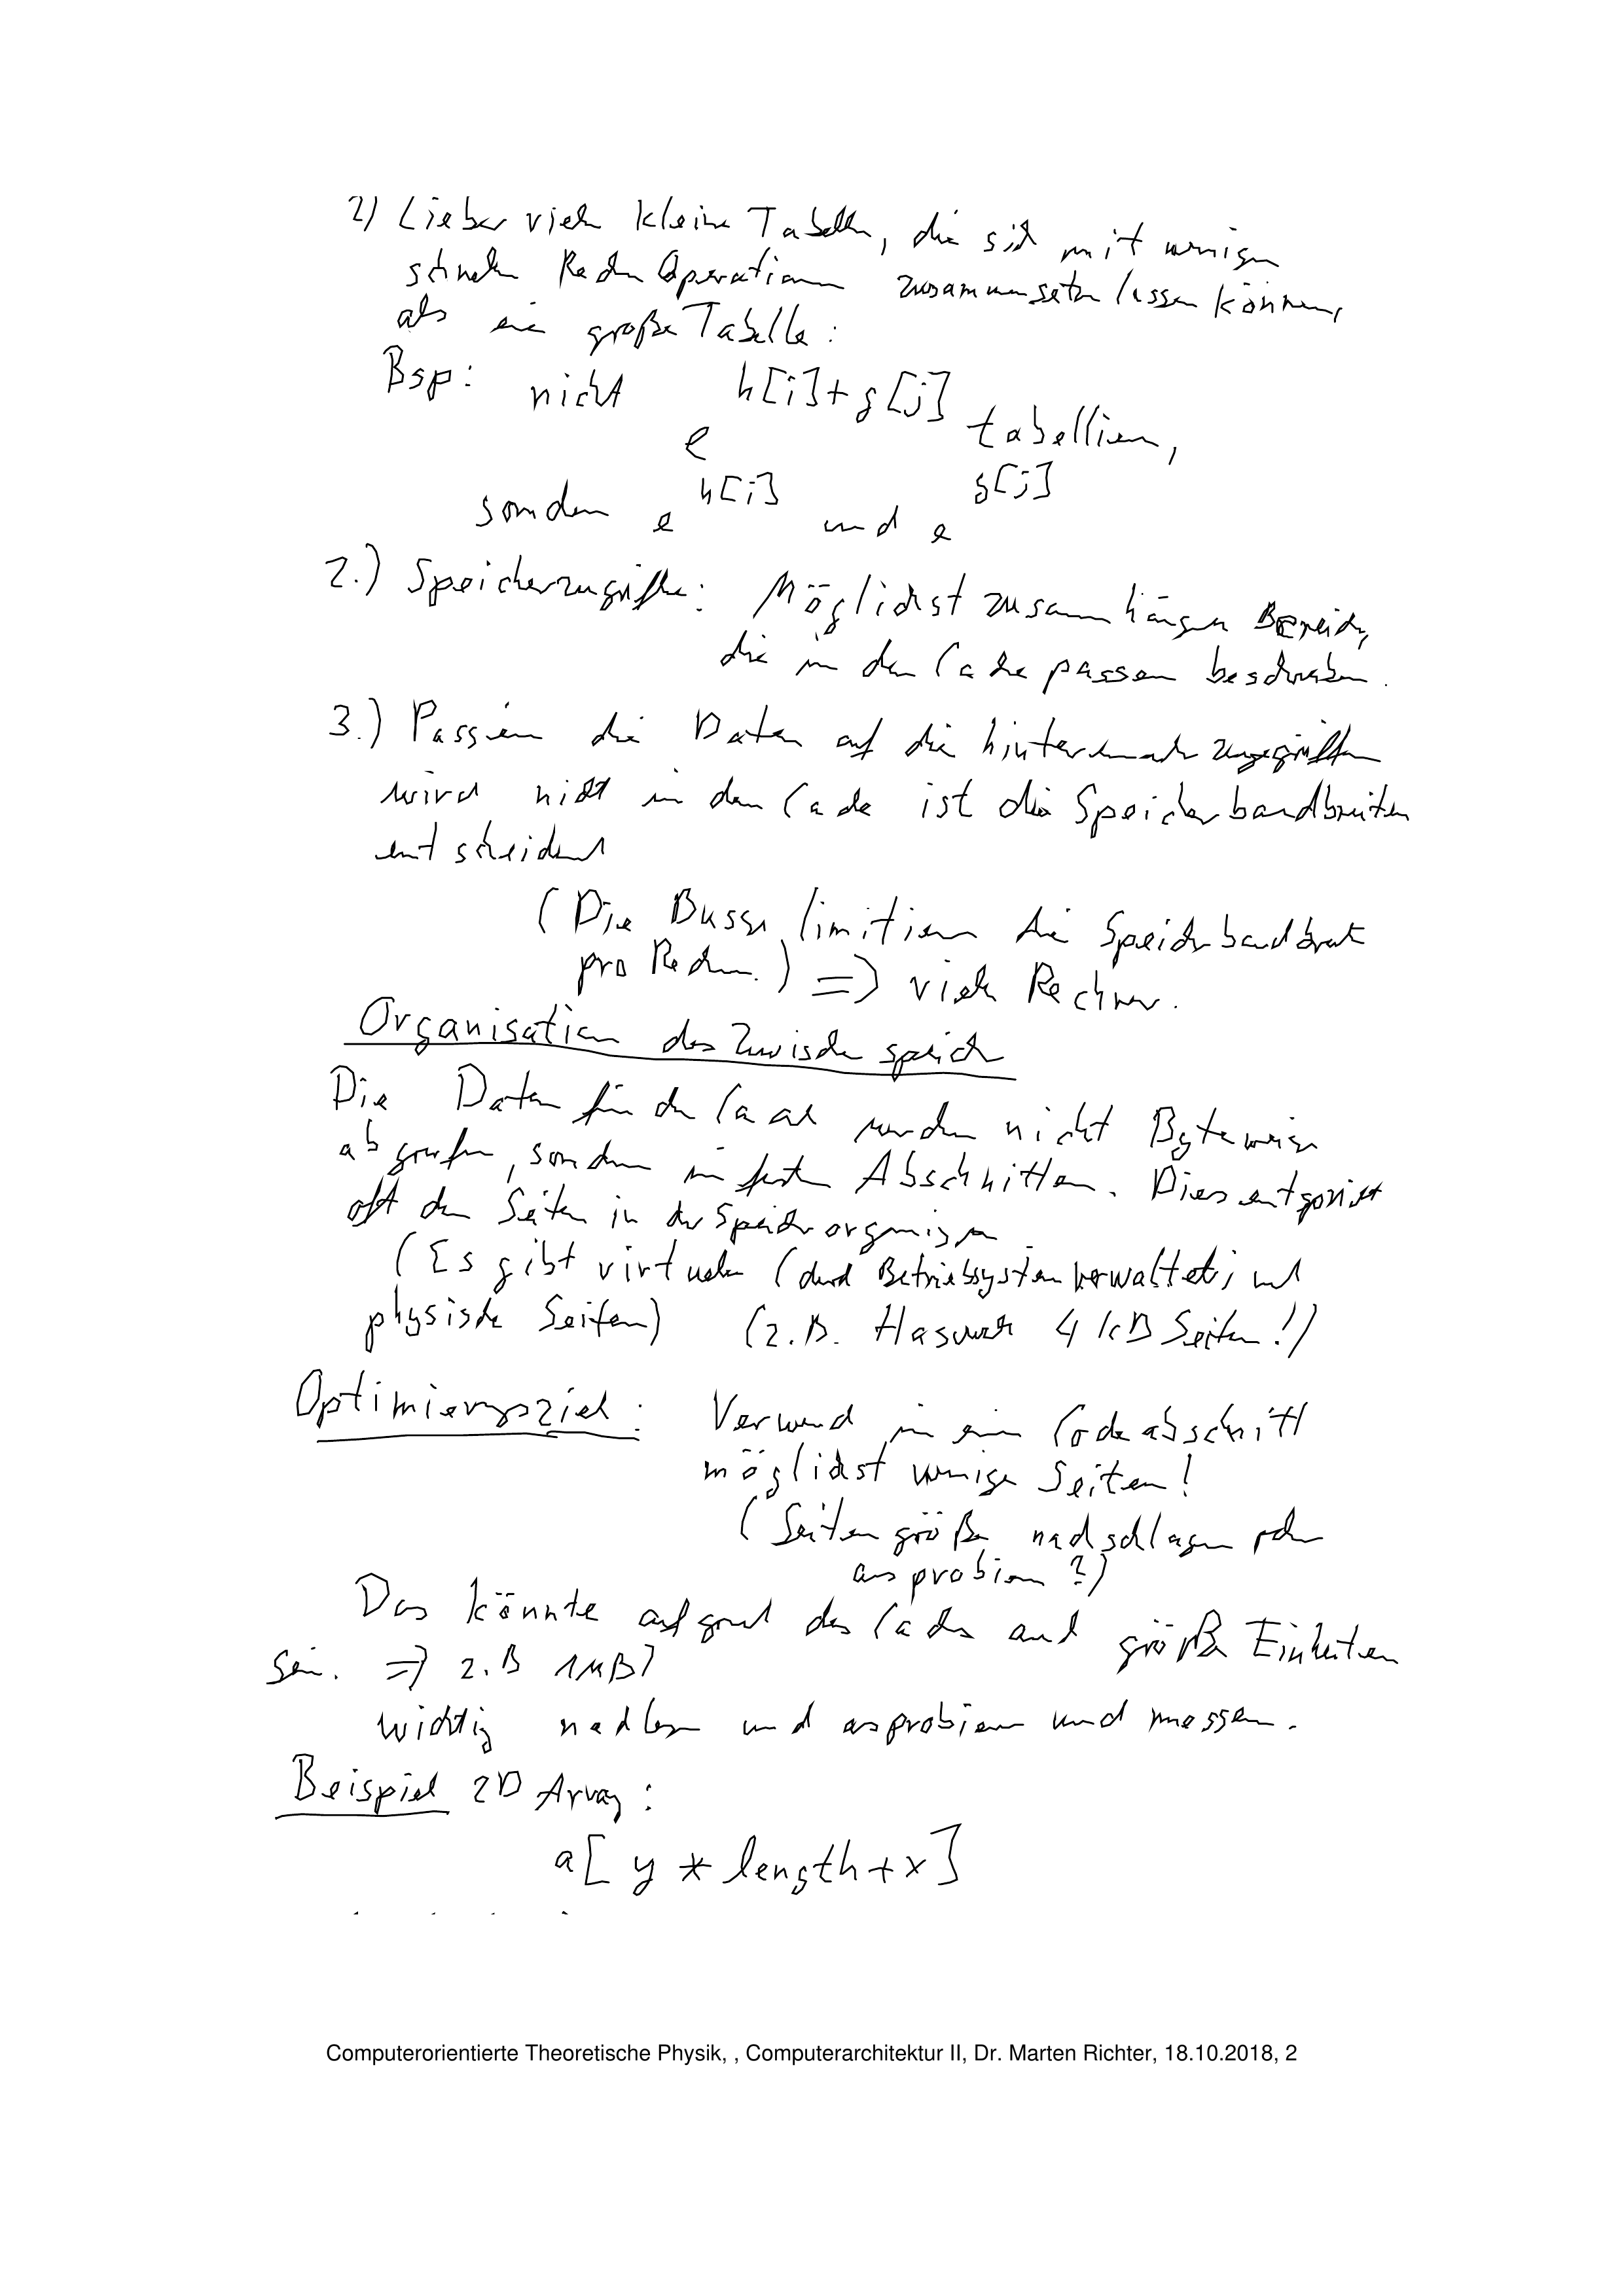 2) Lieber viele kleine Tabellen, die sich mit wenigen
schnellen Rechen Operationen zusammensetzen lassen können,
als eine große Tabelle:
Bsp: nicht e^{h[i]+g[j]} tabellieren,
sondern e^{h[i]} und e^{g[j]}
2.) Speicherzugriffe: Möglichst zusammenhängen Bereiche,
die in den Cache passen beschreiben.
3.) Passen die Daten auf die hintereinander zugegriffen
wird nicht in den Cache ist die Speicherbandbreiten
entscheidend
(Die Busse limitieren die Speicherbandbreite
pro Rechner.) => viele Rechner.
Organisation des Zwischenspeicher
Die Daten für den Cache werden nicht Byteweise
abgerufen, sondern in festen Abschnitten. Dies entspricht
oft den Seiten in der Speicherorganisation
(Es gibt virtuelle (durch Betriebssystem verwaltet) und
physische Seiten) (z.B. Haswell 4 kB Seiten!)
Optimierungsziel: Verwende in einem Codeabschnitt
möglichst wenige Seiten!
(Seitengröße nachschlagen oder
ausprobieren?)
Das könnte aufgrund des Caches auch größere Einheiten
sein. => z.B 1MB?
wichtig nachlesen und ausprobieren und messen.
Beispiel 2D Array:
a[y * length+x]
Computerorientierte Theoretische Physik, , Computerarchitektur II, Dr. Marten Richter, 18.10.2018, 2